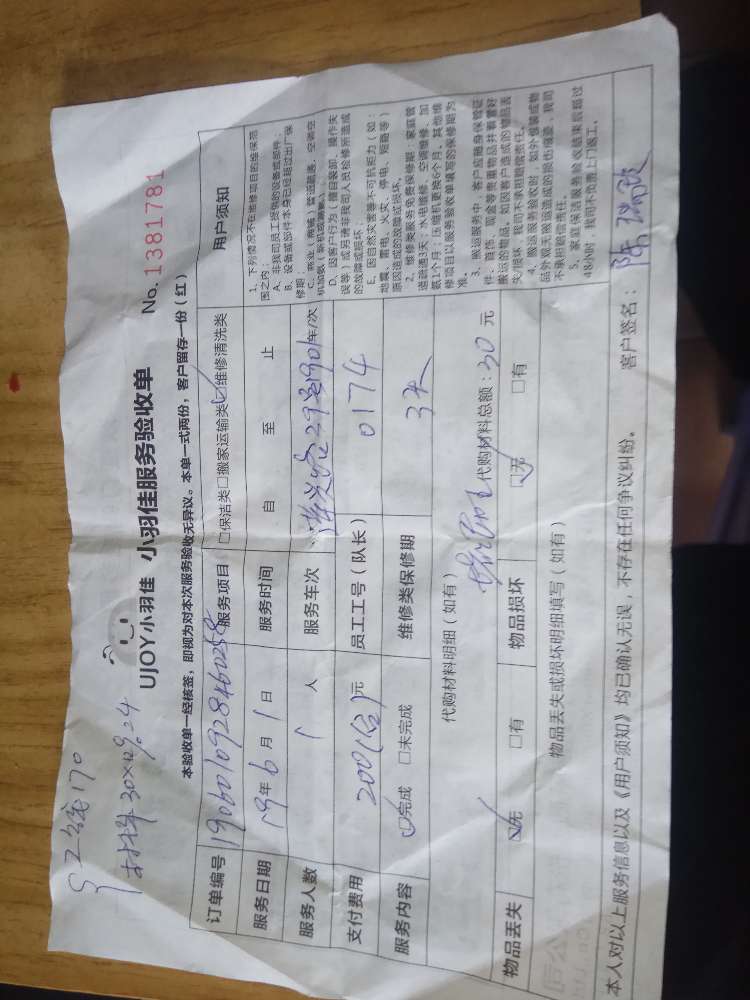 {工钱170
材料30×0.8=24
UJOY小羽佳 小羽佳服务验收单 No. 1381781
本验收单一经核签，即视为对本次服务验收无异议。本单一式两份，客户留存一份（红）
订单编号 190601092846025 服务项目 □保洁类□搬家运输类☑维修清洗类
服务日期 19年6月1日 服务时间 自 至 止
服务人数 1 人 服务车次 车/次
支付费用 200(含)元 员工工号（队长） 0174
服务内容 ☑完成 □未完成 维修类保修期 3天
代购材料明细（如有） 代购材料总额：30元
物品丢失 ☑无 □有 物品损坏 ☑无 □有
物品丢失或损坏明细填写（如有）
用户须知
1、下列情况不在维修项目的维保范
围之内：
A、非我司员工提供的设备或部件；
B、设备或部件本身已经超过出厂保
修期；
D、因客户行为（擅自装卸、操作失
误等）或另请非我司人员检修所造成
的故障或损坏；
E、因自然灾害等不可抗拒力（如：
地震、雷电、火灾、停电、短路等）
原因造成的故障或损坏。
2、维修类服务免费保修期：家庭管
道疏通3天；水电维修、空调维修、加
氨1个月；压缩机更换6个月。其他维
修项目以服务验收单填写的保修期为
准。
3、搬运服务中，客户应随身保管证
件、首饰、现金等贵重物品并看管好
搬运的物品，如因客户造成的物品丢
失/损坏，我司不承担赔偿责任。
4、搬运服务验收时，如外包装或物
品外观无搬运造成的损伤痕迹，我司
不承担赔偿责任。
5、家庭保洁服务验收结束后超过
48小时，我司不负责上门返工。
本人对以上服务信息以及《用户须知》均已确认无误，不存在任何争议纠纷。 客户签名：陈瑞